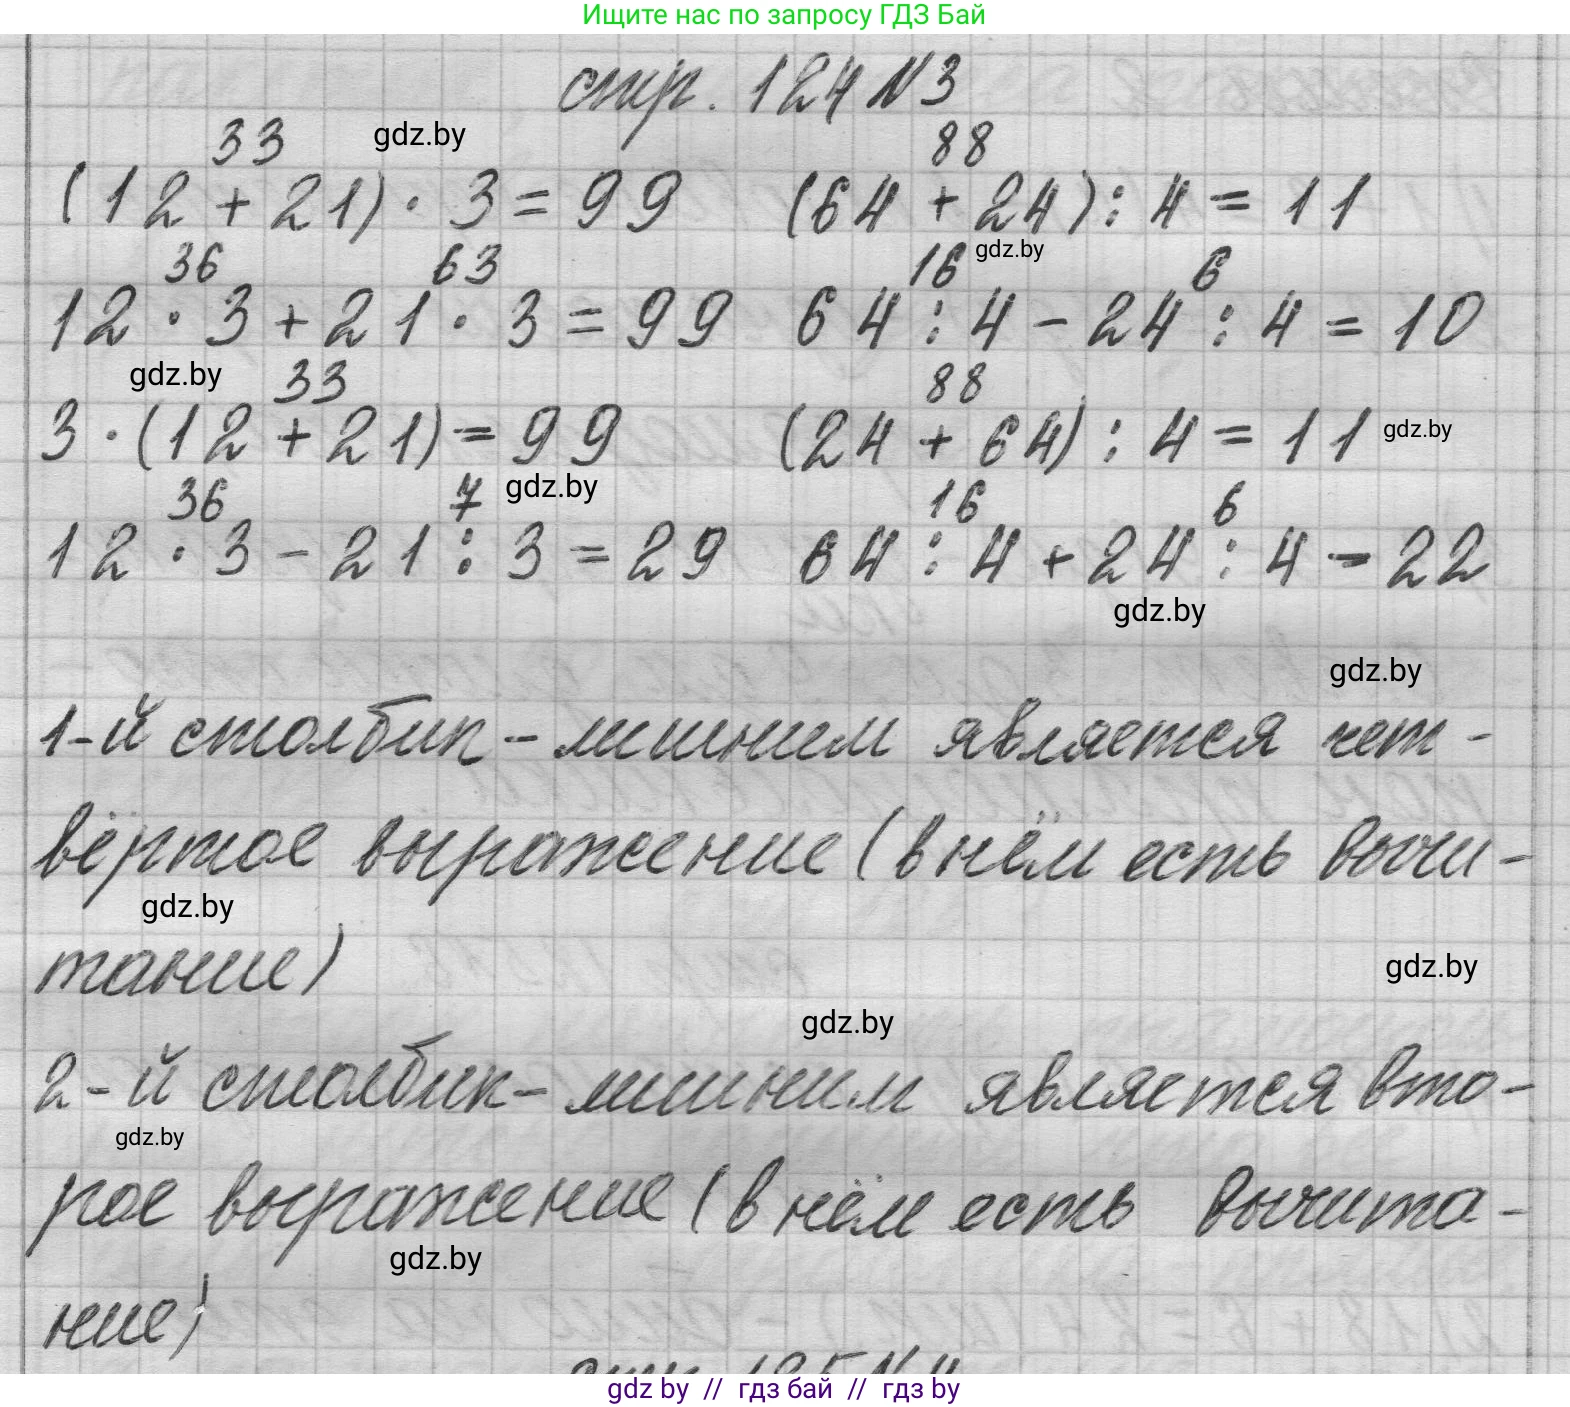 Ищите нас по запросу ГДЗ Бай
стр. 124 №3
33 gdz.by 88
(12 + 21) · 3 = 99 (64 + 24) : 4 = 11
36 63 16 gdz.by 6
12 · 3 + 21 · 3 = 99 64 : 4 - 24 : 4 = 10
gdz.by 33 88
3 · (12 + 21) = 99 (24 + 64) : 4 = 11 gdz.by
36 7 gdz.by 16 6
12 · 3 - 21 : 3 = 29 64 : 4 + 24 : 4 = 22
gdz.by
gdz.by
1-й столбик - лишним является чет-
вёртое выражение (в нём есть вычи-
gdz.by
тание) gdz.by
gdz.by
2-й столбик - лишним является вто-
gdz.by
рое выражение (в нём есть вычита-
gdz.by
ние)
стр. 125 №4
gdz by // гдз бай // гдз by